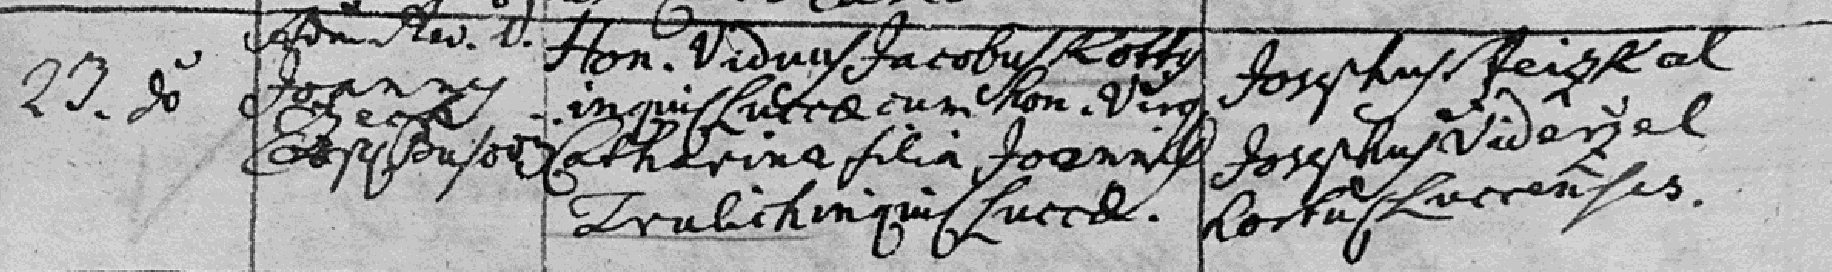 23. do
Adm. Rev. D.
Joannes
Czech
Hon. Viduus Jacobus Kotty
inquis Luccæ cum hon. Virg.
Catharina filia Joannis
Trulich inquis Luccæ.
Josephus Zeizkal
Josephus Viderzal
Luccenses.